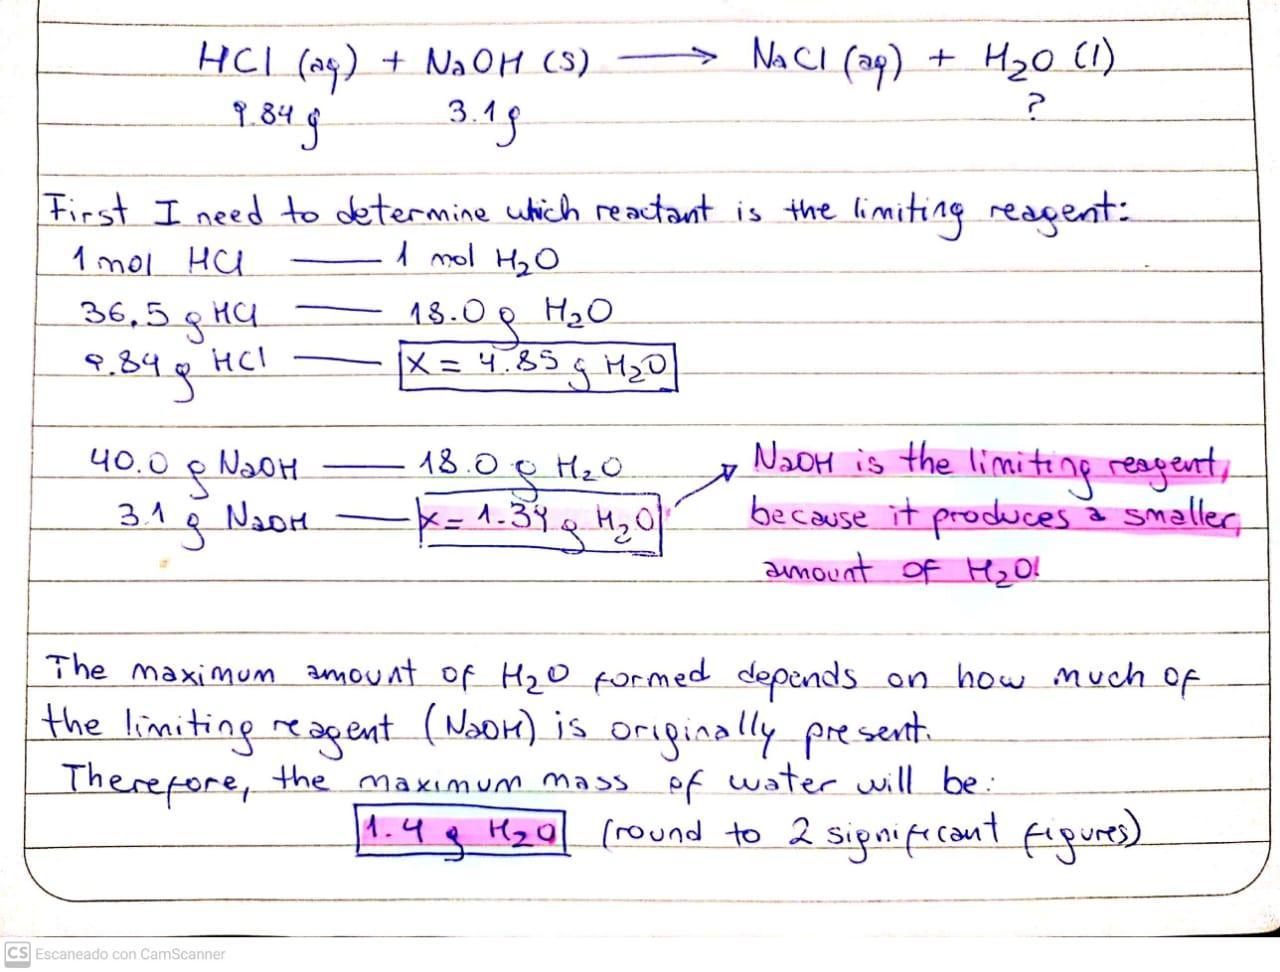 HCl (aq) + NaOH (s) ⟶ NaCl (aq) + H₂O (l)
9.84 g 3.1 g ?
First I need to determine which reactant is the limiting reagent:
1 mol HCl —— 1 mol H₂O
36,5 g HCl —— 18.0 g H₂O
9.84 g HCl —— x = 4.85 g H₂O
40.0 g NaOH —— 18.0 g H₂O
3.1 g NaOH —— x = 1.39 g H₂O
NaOH is the limiting reagent,
because it produces a smaller
amount of H₂O!
The maximum amount of H₂O formed depends on how much of
the limiting reagent (NaOH) is originally present.
Therefore, the maximum mass of water will be:
1.4 g H₂O (round to 2 significant figures)
CS Escaneado con CamScanner